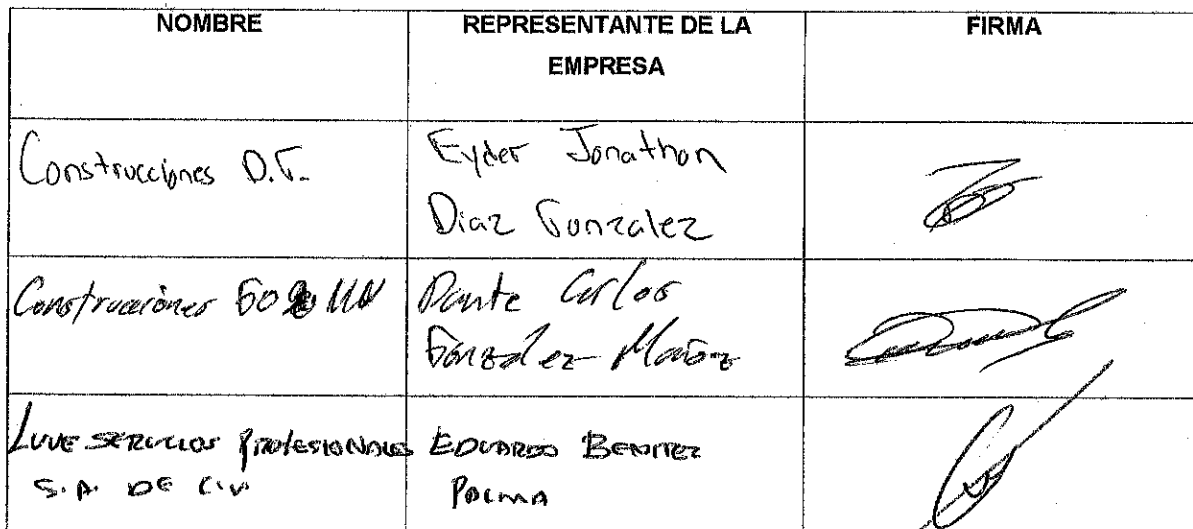 NOMBRE
REPRESENTANTE DE LA
EMPRESA
FIRMA
Construcciones D.G.
Eyder Jonathan
Diaz Gonzalez
Construcciones
Dante Carlos
González Muñoz
LUVE SERVICIOS PROFESIONALES
S.A. DE C.V.
EDUARDO BENITEZ
PALMA